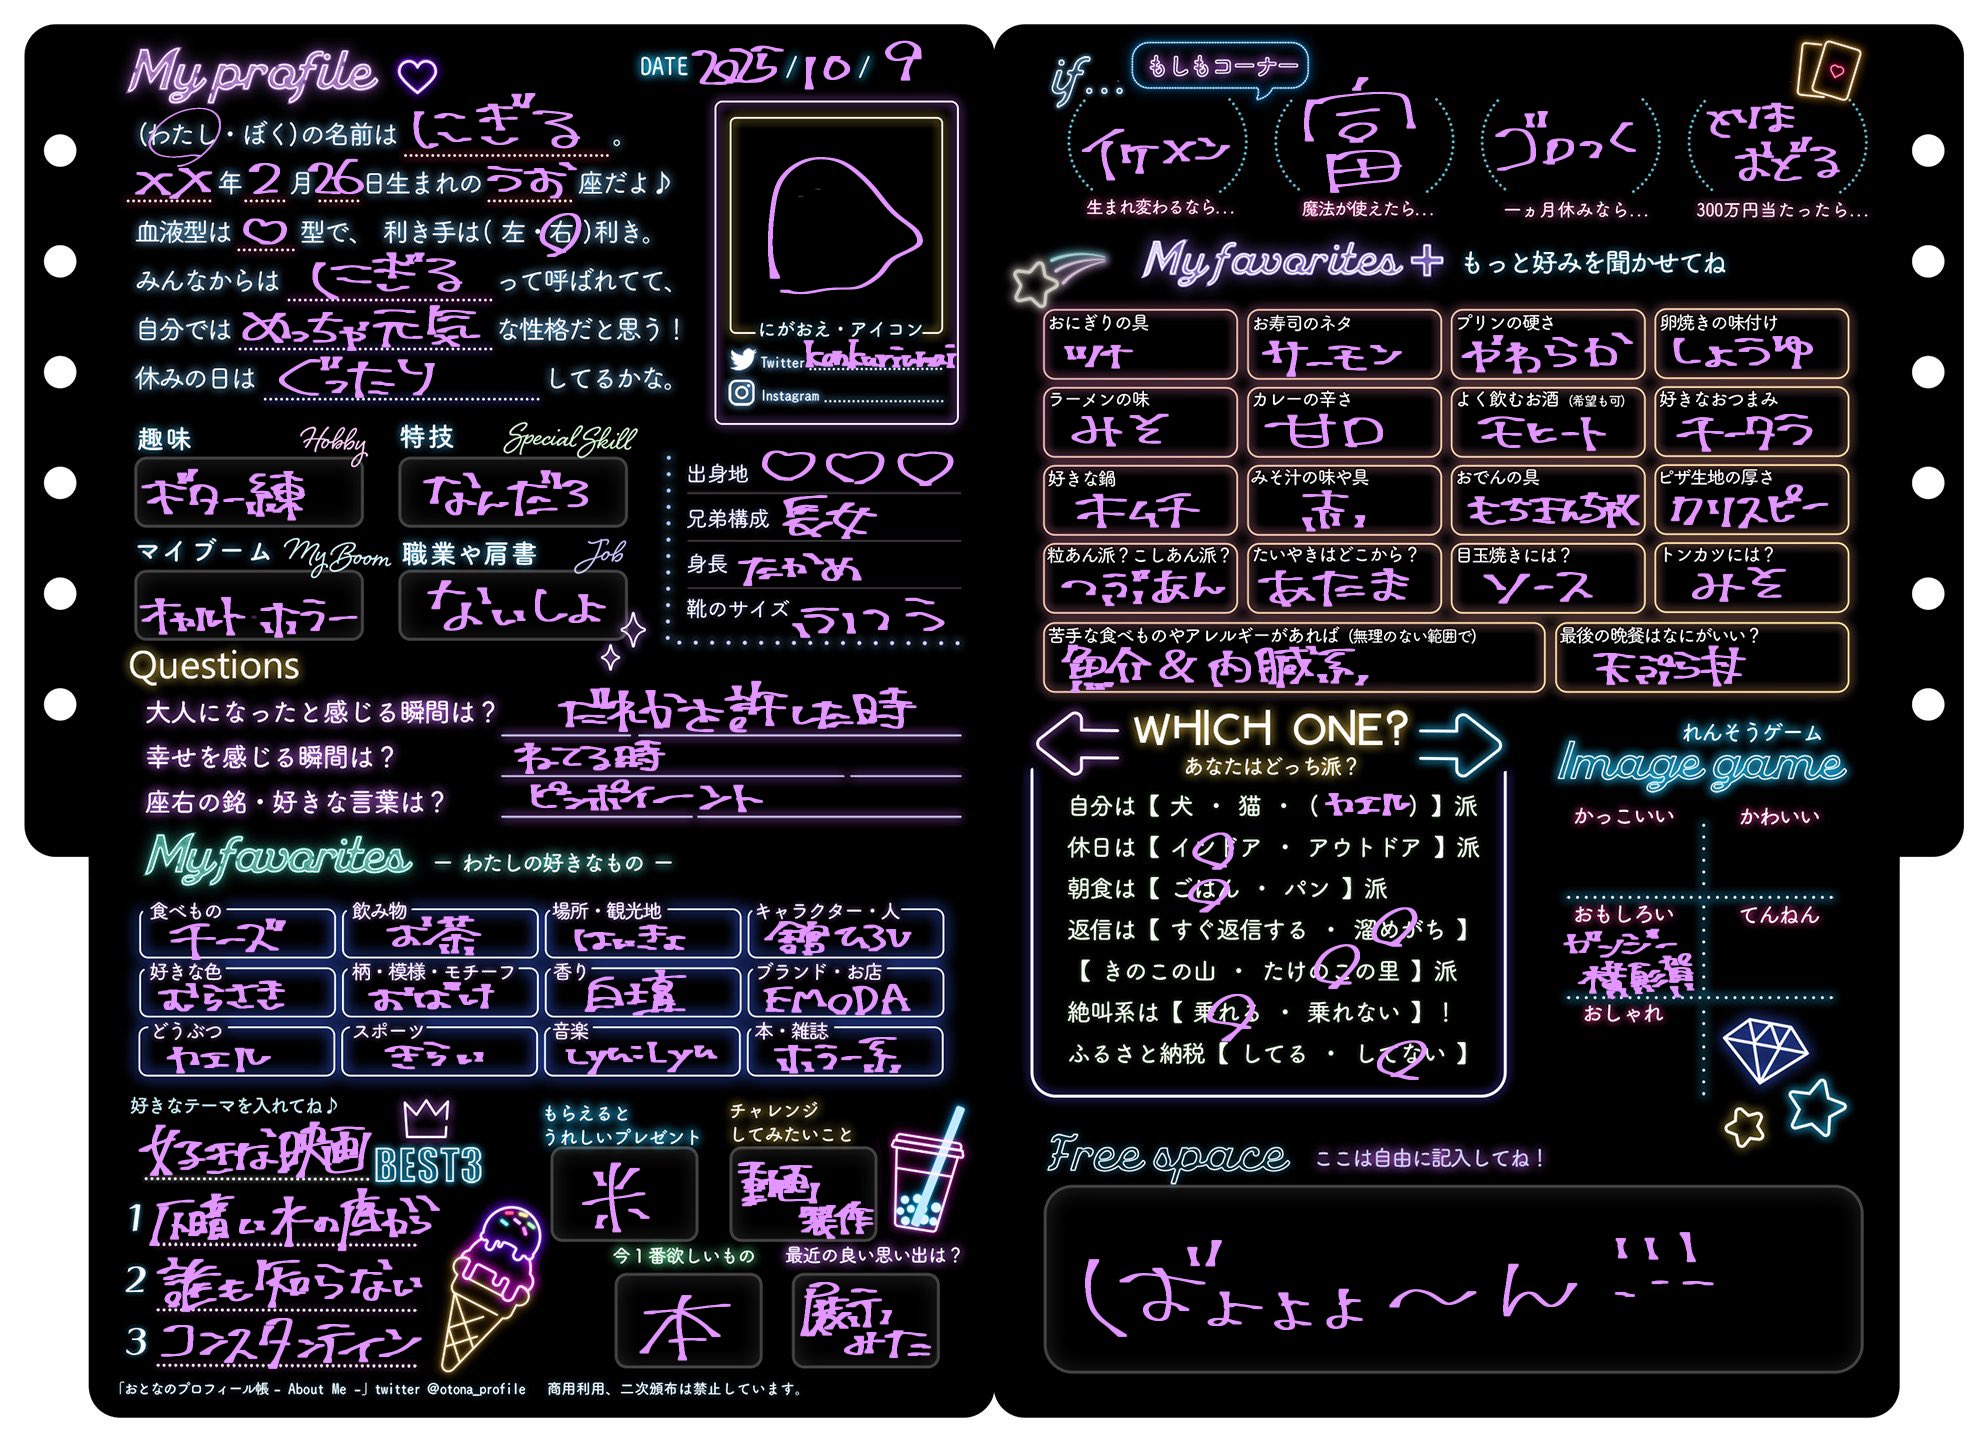 My profile
DATE 2025/10/9
(わたし・ぼく)の名前は にぎる 。
XX年2月26日生まれのうお座だよ♪
血液型は ♡ 型で、 利き手は( 左・右 )利き。
みんなからは にぎる って呼ばれてて、
自分では めっちゃ元気 な性格だと思う！
休みの日は ぐったり してるかな。
にがおえ・アイコン
Twitter
Instagram
趣味 Hobby
ギター練
特技 Special Skill
なんだろ
マイブーム My Boom
オカルト ホラー
職業や肩書 Job
ないしょ
出身地 ♡♡♡
兄弟構成 長女
身長 たかめ
靴のサイズ ふつう
Questions
大人になったと感じる瞬間は？ だれかを許した時
幸せを感じる瞬間は？ ねてる時
座右の銘・好きな言葉は？ ピンポイーント
My favorites － わたしの好きなもの －
食べもの チーズ
飲み物 お茶
場所・観光地 はいきょ
キャラクター・人 舘ひろし
好きな色 むらさき
柄・模様・モチーフ おばけ
香り 白檀
ブランド・お店 EMODA
どうぶつ カエル
スポーツ きらい
音楽 Lyu:Lyu
本・雑誌 ホラー系
好きなテーマを入れてね♪
好きな映画 BEST3
1 仄暗い水の底から
2 誰も知らない
3 コンスタンティン
もらえると
うれしいプレゼント
米
チャレンジ
してみたいこと
動画
製作
今１番欲しいもの
本
最近の良い思い出は？
展示
みた
「おとなのプロフィール帳 - About Me -」twitter @otona_profile 商用利用、二次頒布は禁止しています。
if... もしもコーナー
イケメン
生まれ変わるなら...
富
魔法が使えたら...
ゴロつく
一ヵ月休みなら...
とりま
おどる
300万円当たったら...
My favorites + もっと好みを聞かせてね
おにぎりの具 ツナ
お寿司のネタ サーモン
プリンの硬さ やわらか
卵焼きの味付け しょうゆ
ラーメンの味 みそ
カレーの辛さ 甘口
よく飲むお酒 (希望も可) モヒート
好きなおつまみ チータラ
好きな鍋 キムチ
みそ汁の味や具 赤
おでんの具 もちきんちゃく
ピザ生地の厚さ クリスピー
粒あん派？こしあん派？ つぶあん
たいやきはどこから？ あたま
目玉焼きには？ ソース
トンカツには？ みそ
苦手な食べものやアレルギーがあれば (無理のない範囲で)
魚介 & 内臓系
最後の晩餐はなにがいい？
天ぷら丼
WHICH ONE?
あなたはどっち派？
自分は【 犬 ・ 猫 ・ ( カエル ) 】派
休日は【 インドア ・ アウトドア 】派
朝食は【 ごはん ・ パン 】派
返信は【 すぐ返信する ・ 溜めがち 】
【 きのこの山 ・ たけのこの里 】派
絶叫系は【 乗れる ・ 乗れない 】！
ふるさと納税【 してる ・ してない 】
れんそうゲーム
Image game
かっこいい
かわいい
おもしろい
ガンジー
横須賀
てんねん
おしゃれ
Free space ここは自由に記入してね！
ばょょょ〜ん